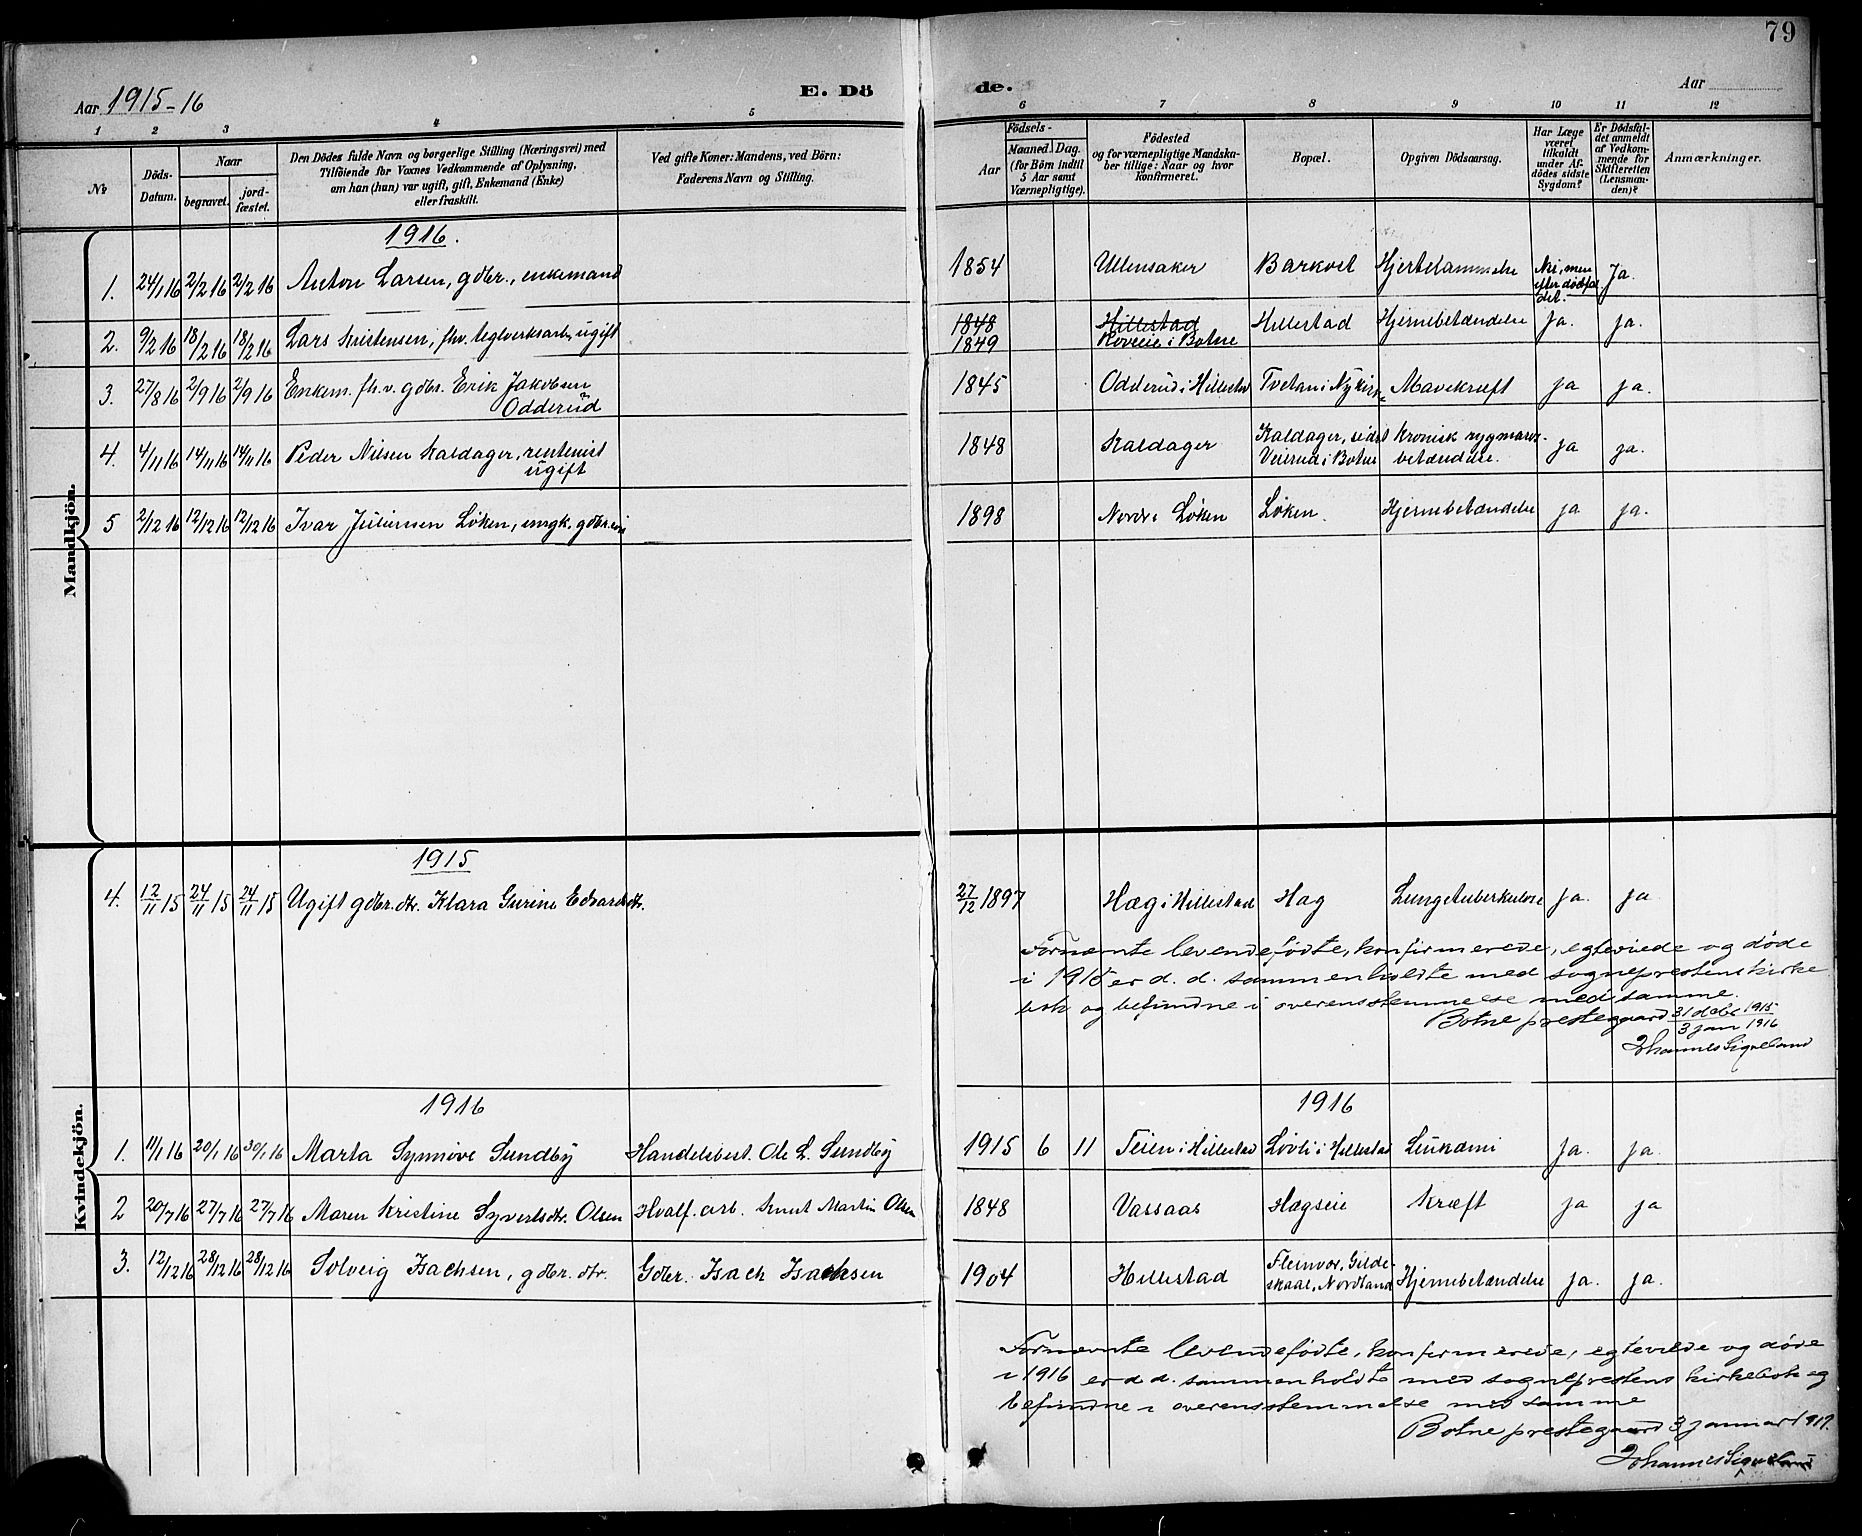 79
Aar 1915-16
E. Dö
de.
Aar
1 2 3 4 5 6 7 8 9 10 11 12
No
Döds-Datum.
Naar
begravet.
jord-fæstet.
Den Dödes fulde Navn og borgerlige Stilling (Næringsvei) med
Tilföiende for Voxnes Vedkommende af Oplysning,
om han (hun) var ugift, gift, Enkemand (Enke)
eller fraskilt.
Ved gifte Koner: Mandens, ved Börn:
Faderens Navn og Stilling.
Födsels-
Aar
Maaned. Dag.
(for Börn indtil
5 Aar samt
Værnepligtige).
Födested
og for værnepligtige Mandska-
ber tillige: Naar og hvor
konfirmeret.
Bopæl.
Opgiven Dödsaarsag.
Har Læge
været
tilkaldt
under Af-
dödes sidste
Sygdom?
Er Dödsfal-
det anmeldt
af Vedkom-
mende for
Skifteretten
(Lensman-
den)?
Anmærkninger.
Mandkjön.
1916.
1. 24/1 16 2/2 16 2/2 16 Anton Larsen, gdbr., enkemand 1854 Ullensaker Barkost Hjertelammelse Nei, men efter dødsfaldet. Ja.
2. 9/2 16 18/2 16 18/2 16 Lars Kristensen, fhv. teglverksarb., ugift 1848 1849 Hillestad Roveie i Botne Hillestad Hjernebetændelse Ja. ja.
3. 27/8 16 2/9 16 2/9 16 Enkem. fh.v. gdbr. Erik Jakobsen
Odderud 1845 Odderud i Hillestad Tvetan i Nykirke Mavekræft ja ja.
4. 4/11 16 14/11 16 14/11 16 Peder Nilsen Kaldager, rentenist
ugift 1848 Kaldager Kaldager, sidst Veierud i Botne Kronisk rygmarvs-betændelse. ja ja.
5 2/12 16 12/12 16 12/12 16 Ivar Juliussen Løken, ungk. gdbr. 1898 Nordr. Løken Løken. Hjernebetændelse ja ja.
Kvindekjön.
1915
4. 12/11 15 24/11 15 24/11 15 Ugift gdbr. dtr. Klara Gurine Edvardsdtr. 27/12 1897 Hæg i Hillestad Hag Lungetuberkulose ja. ja
Fornævnte levendefødte, konfirmerede, egteviede og døde
i 1915 er d. d. sammenholdte med sogneprestens kirke
bok og befundne i overensstemmelse med samme.
Botne prestegaard 31 debr 1915
3 jan 1916
Johannes Sigveland
1916
1916
1. 11/1 16 20/1 16 30/1 16 Marta Synnøve Sundby Handelsbest. Ole L. Sundby 1915 6 11 Teien i Hillestad Løvli i Hillestad Leukæmi Ja. Ja.
2 20/7 16 27/7 16 27/7 16 Maren Kristine Syvertsdtr. Olsen Hvalf. arb. Knut Martin Olsen 1848 Vassaas Hagseie Kræft ja ja
3. 12/12 16 28/12 16 28/12 16 Solveig Isachsen, gdbr. dtr. Gdbr. Isach Isachsen 1904 Hillestad Fleinvær, Gilde-skaal, Nordland Hjernebetændelse ja. ja.
Fornævnte levendefødte, konfirmerede, egteviede og døde
i 1916 er d d. sammenholdt med sogneprestens kirkebok og
befundne i overensstemmelse med samme
Botne prestegaard 3 januar 1917.
Johannes Sigveland